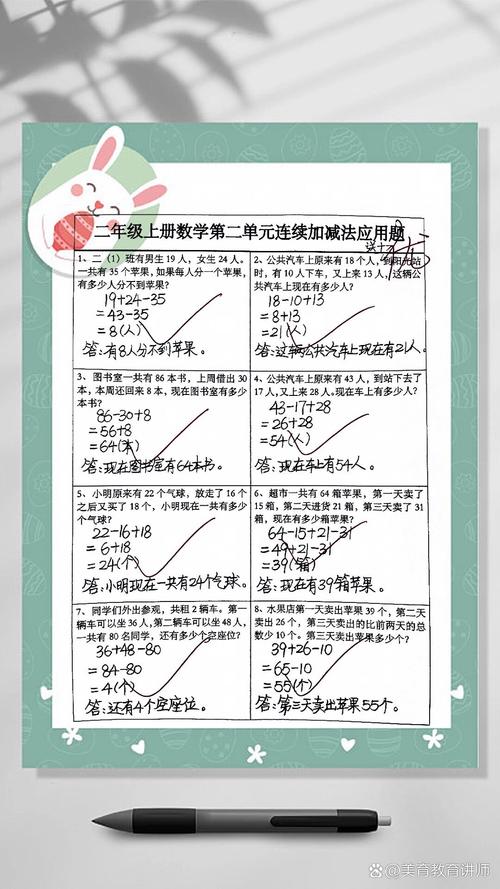 二年级上册数学第二单元连续加减法应用题
1、二（1）班有男生19人，女生24人。
一共有35个苹果，如果每人分一个苹果，
有多少人分不到苹果？
19+24-35
=43-35
=8(人)
答:有8人分不到苹果。
2、公共汽车上原来有18个人，到阳光站
时，有10人下车，又上来13人，这辆公
共汽车上现在有多少人？
18-10+13
=8+13
=21(人)
答:这辆公共汽车上现在有21人.
3、图书室一共有86本书，上周借出30
本，本周还回来8本，现在图书室有多少
本书？
86-30+8
=56+8
=64(本)
答:现在图书室有64本书.
4、公共汽车上原来有43人，到站下去了
17人，又上来28人。现在车上有多少人？
43-17+28
=26+28
=54(人)
答:现在车上有54人。
5、小明原来有22个气球，放走了16个
之后又买了18个，小明现在一共有多少
个气球？
22-16+18
=6+18
=24(个)
答:小明现在一共有24个气球。
6、超市一共有64箱苹果，第一天卖了
15箱，第二天进货21箱，第三天卖了31
箱，现在有多少箱苹果？
64-15+21-31
=49+21-31
=39(箱)
答:现在有39箱苹果。
7、同学们外出参观，共租2辆车。第一
辆车可以坐36人，第二辆车可以坐48人，
一共有80名同学，还有多少个空座位？
36+48-80
=84-80
=4(个)
答:还有4个空座位。
8、水果店第一天卖出苹果39个，第二天
卖出26个，第三天卖出的比前两天的总
数少10个。第三天卖出苹果多少个？
39+26-10
=65-10
=55(个)
答:第三天卖出苹果55个。
美育教育讲师